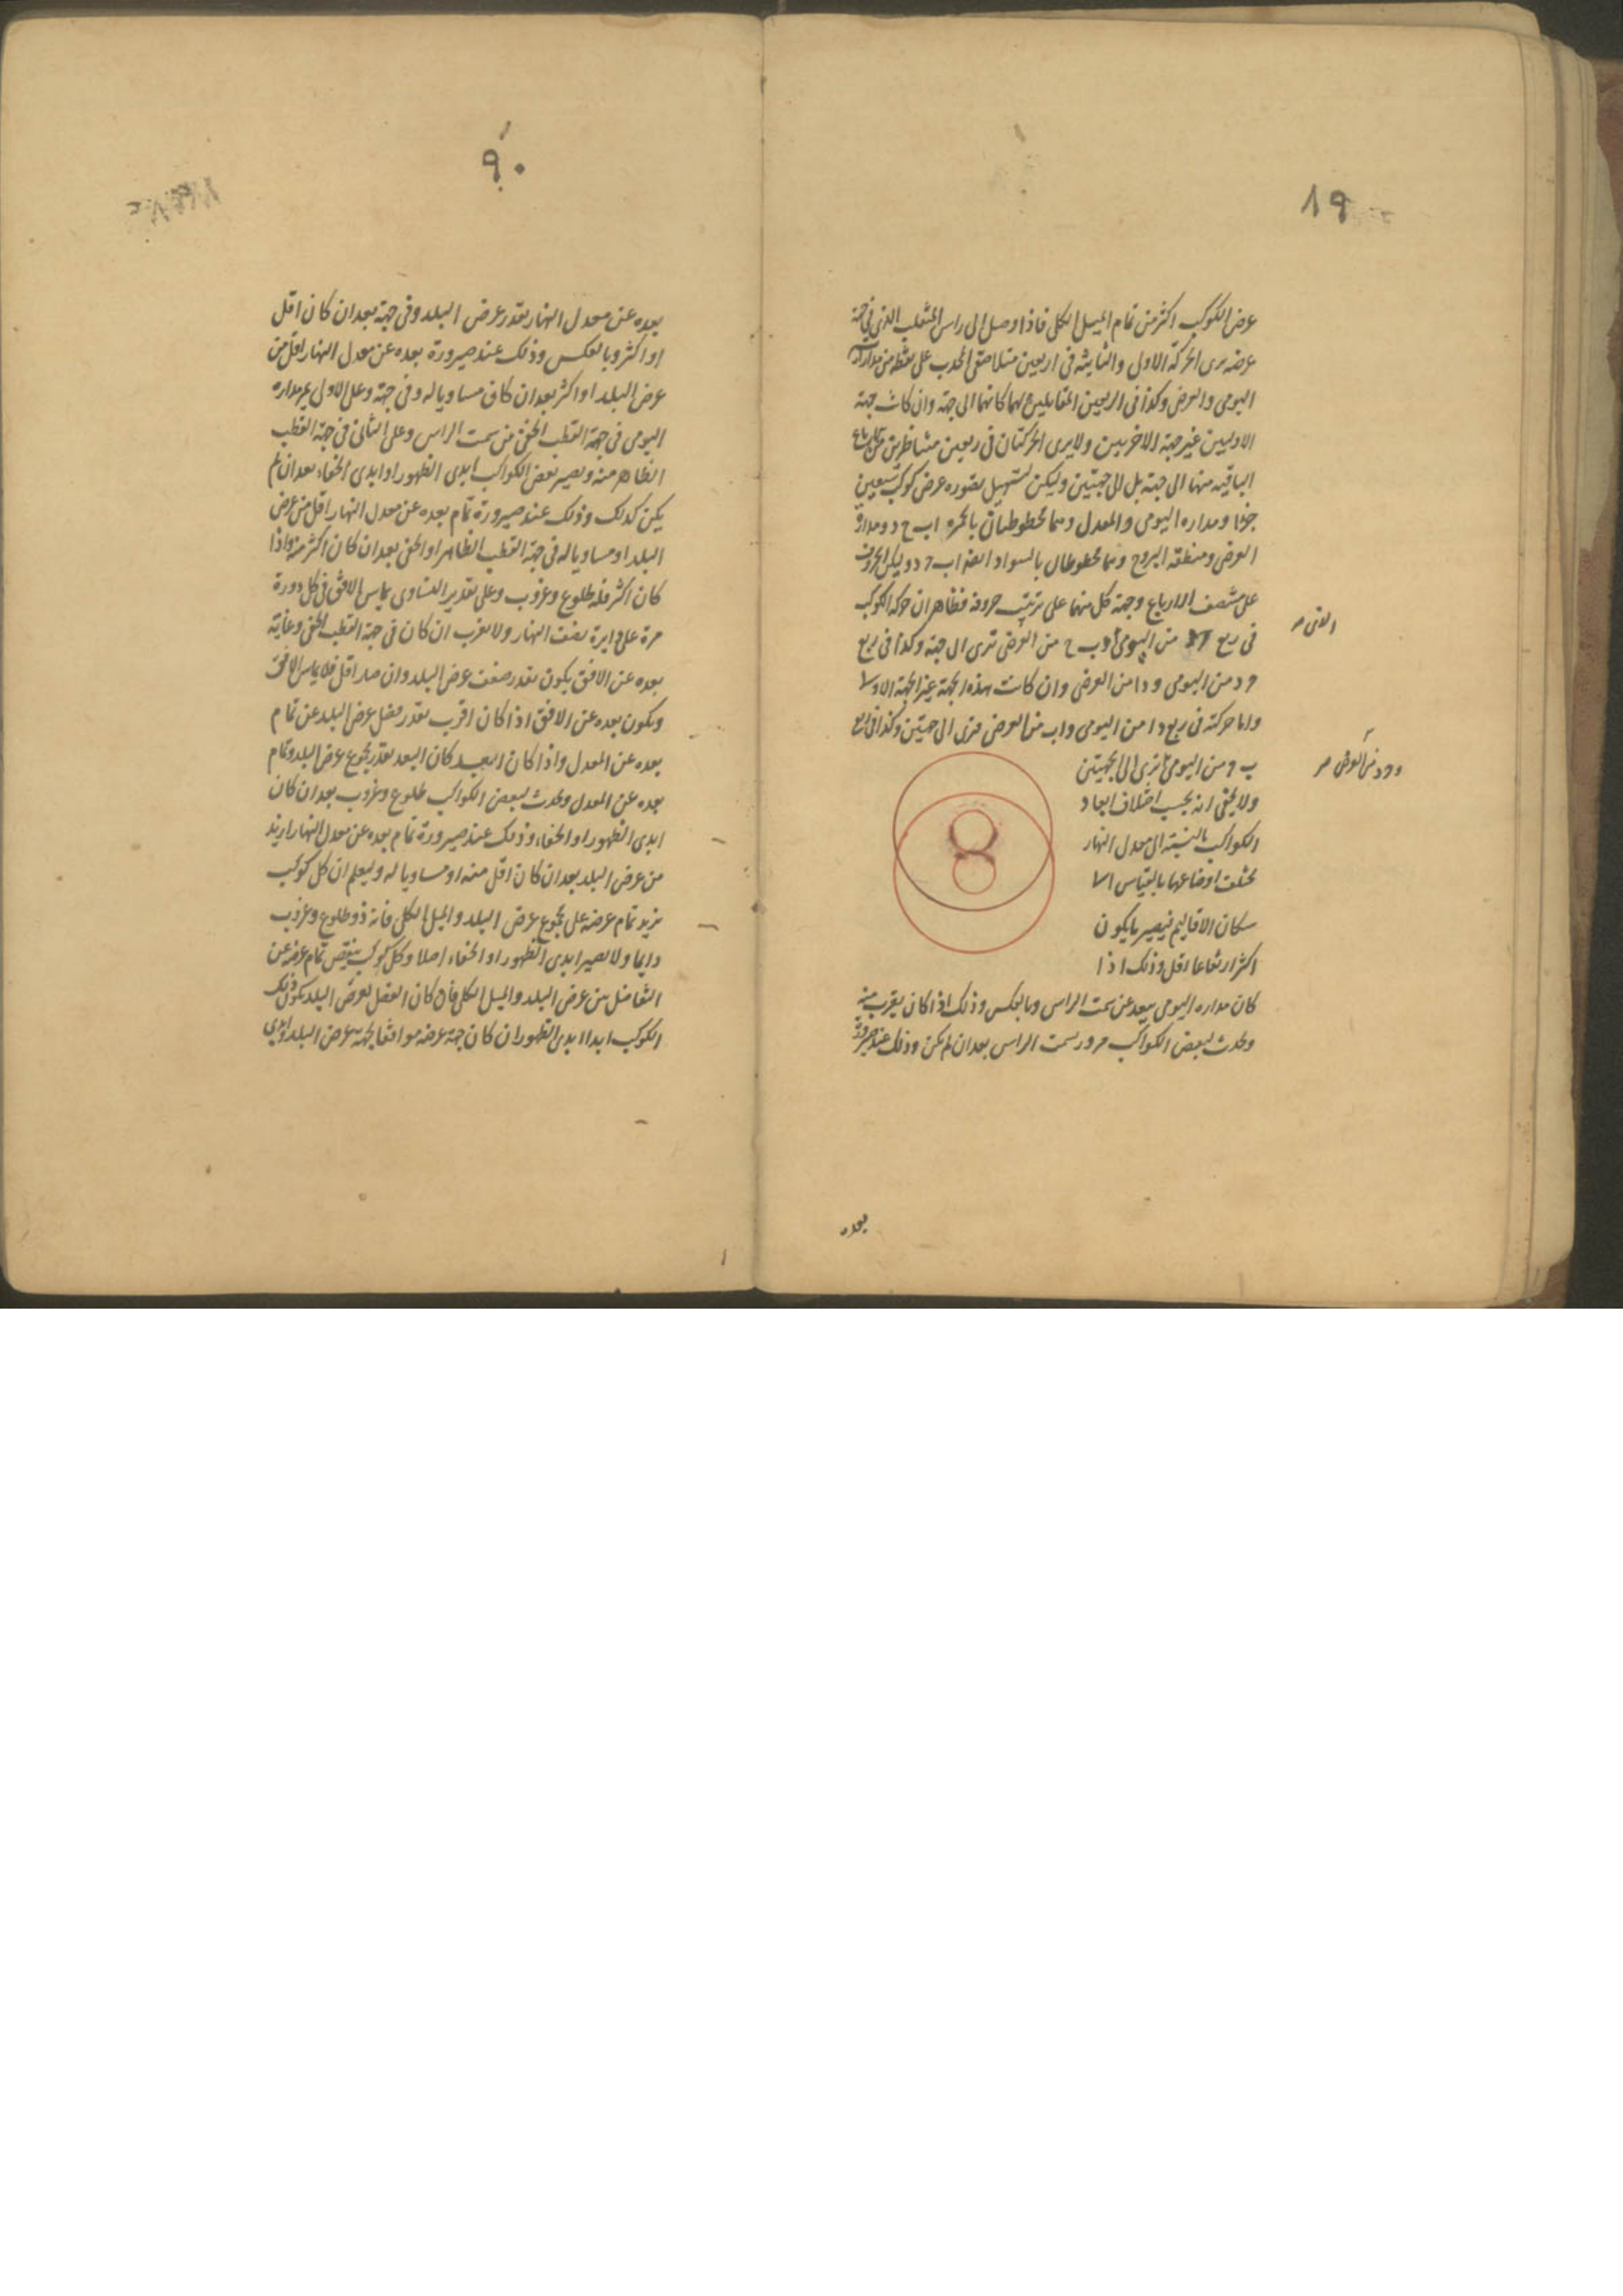 ١٩
عرض الكوكب اكثر من تمام الميل الكلى فاذا وصل الى راس المنقلب الذى فى جهة
عرضه يرى الحركة الاولى والثانية فى اربعين متلاصقى المحدب على نقطة من مداره
اليومى والعرضى وكذا فى الربعين المتقابلين لهما كانهما الى جهة وان كانت جهة
الاوليين غير جهة الاخريين ولا يرى الحركتان فى ربعين متناظرين من الارباع
الباقية منهما الى جهة بل الى جهتين وليكن لتسهيل تصوره عرض كوكب تسعين
جزءا ومداره اليومى والمعدل وهما مخطوطتان بالحمرة ا ب ح د ومداره
العرضى ومنطقة البروج وهما مخطوطان بالسواد ايضا ا ب ح د وليكن الحروف
على منتصف الارباع وجهة كل منهما على ترتيب حروفه فظاهر ان حركة الكوكب
فى ربع من اليومى و ب ح من العرضى ترى الى جهة وكذا فى ربع
ح د من اليومى و د ا من العرضى وان كانت هذه الجهة غير الجهة الاولى
واما حركته فى ربع د ا من اليومى و ا ب من العرضى فترى الى جهتين وكذا فى ربع
ب ح من اليومى ترى الى الجهتين
ولا يخفى انه بحسب اختلاف ابعاد
الكواكب بالنسبة الى معدل النهار
تختلف اوضاعها بالقياس الى
سكان الاقاليم فيصير ما يكون
اكثر ارتفاعا اقل وذلك اذا
كان مداره اليومى يبعد عن سمت الراس وبالعكس وذلك اذا كان يقرب منه
ويحدث لبعض الكواكب مرور بسمت الراس بعد ان لم يكن وذلك عند صيرورة
و ح د من العرضى
بعده
٩٠
بعده عن معدل النهار بقدر عرض البلد وفى جهة بعد ان كان اقل
او اكثر وبالعكس وذلك عند صيرورة بعده عن معدل النهار اقل من
عرض البلد او اكثر بعد ان كان مساويا له وفى جهة وعلى الاولى يمر مداره
اليومى فى جهة القطب الخفى من سمت الراس وعلى الثانى فى جهة القطب
الظاهر منه ويصير بعض الكواكب ابدى الظهور او ابدى الخفاء بعد ان لم
يكن كذلك وذلك عند صيرورة تمام بعده عن معدل النهار اقل من عرض
البلد او مساويا له فى جهة القطب الظاهر او الخفى بعد ان كان اكثر منه واذا
كان اكثر فله طلوع وغروب وعلى تقدير التساوى يماس الافق فى كل دورة
مرة على دايرة نصف النهار ولا يغرب ان كان فى جهة القطب الخفى وغاية
بعده عن الافق يكون بقدر ضعف عرض البلد وان صار اقل فلا يماس الافق
ويكون بعده عن الافق اذا كان اقرب بقدر فضل عرض البلد عن تمام
بعده عن المعدل واذا كان ابعد كان البعد بقدر مجموع عرض البلد وتمام
بعده عن المعدل ويحدث لبعض الكواكب طلوع وغروب بعد ان كان
ابدى الظهور او الخفاء وذلك عند صيرورة تمام بعده عن معدل النهار ازيد
من عرض البلد بعد ان كان اقل منه او مساويا له وليعلم ان كل كوكب
يزيد تمام عرضه على مجموع عرض البلد والميل الكلى فانه ذو طلوع وغروب
دايما ولا يصير ابدى الظهور او الخفاء اصلا وكل كوكب ينقص تمام عرضه عن
التفاضل بين عرض البلد والميل الكلى فان كان الفضل لعرض البلد يكون ذلك
الكوكب ابدا ابدى الظهور ان كان جهة عرضه موافقا لجهة عرض البلد وابدى